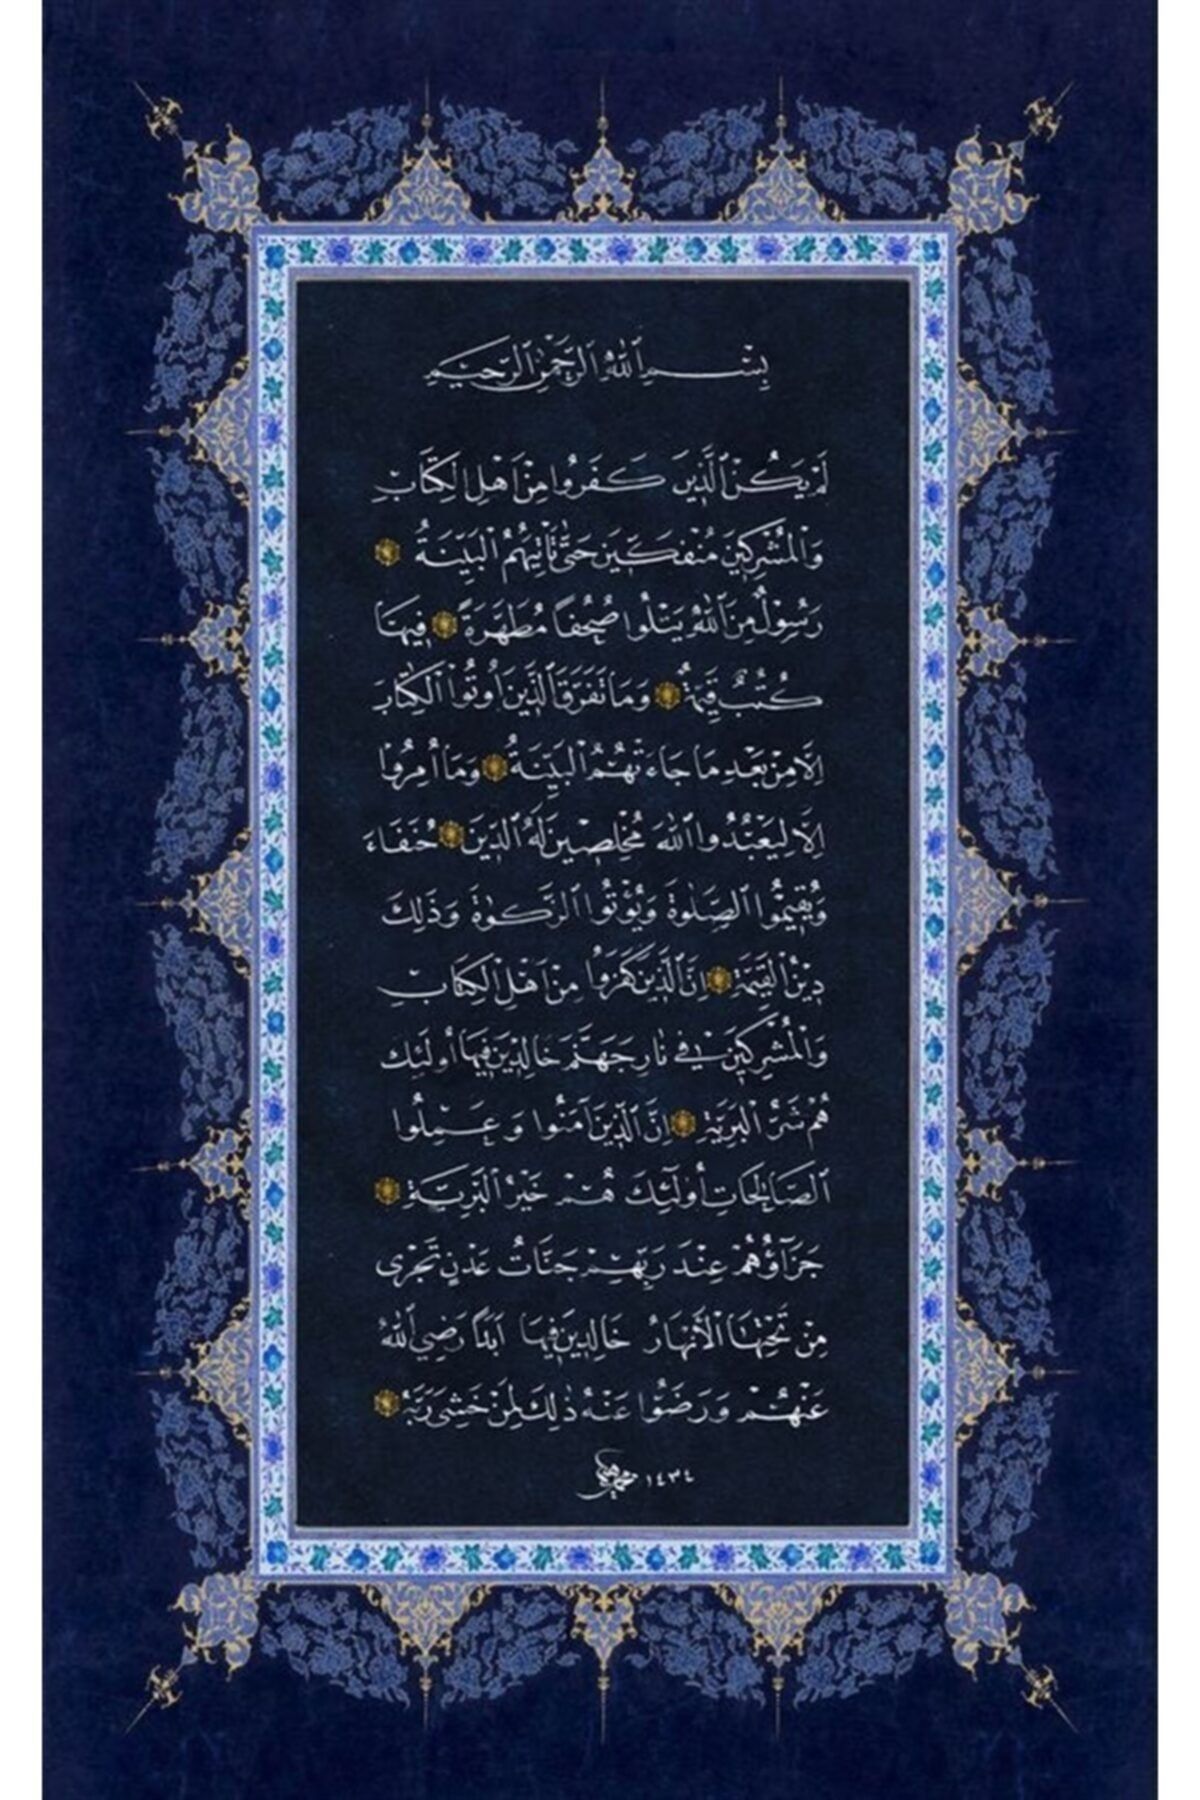 بِسْمِ اللّٰهِ الرَّحْمٰنِ الرَّحِيمِ
لَمْ يَكُنِ الَّذِينَ كَفَرُوا مِنْ اَهْلِ الْكِتَابِ
وَالْمُشْرِكِينَ مُنْفَكِّينَ حَتّٰى تَأْتِيَهُمُ الْبَيِّنَةُ
رَسُولٌ مِنَ اللّٰهِ يَتْلُوا صُحُفًا مُطَهَّرَةً فِيهَا
كُتُبٌ قَيِّمَةٌ وَمَا تَفَرَّقَ الَّذِينَ اُوتُوا الْكِتَابَ
اِلَّا مِنْ بَعْدِ مَا جَاءَتْهُمُ الْبَيِّنَةُ وَمَا اُمِرُوا
اِلَّا لِيَعْبُدُوا اللّٰهَ مُخْلِصِينَ لَهُ الدِّينَ حُنَفَاءَ
وَيُقِيمُوا الصَّلٰوةَ وَيُؤْتُوا الزَّكٰوةَ وَذٰلِكَ
دِينُ الْقَيِّمَةِ اِنَّ الَّذِينَ كَفَرُوا مِنْ اَهْلِ الْكِتَابِ
وَالْمُشْرِكِينَ فِي نَارِ جَهَنَّمَ خَالِدِينَ فِيهَا اُولٰئِكَ
هُمْ شَرُّ الْبَرِيَّةِ اِنَّ الَّذِينَ اٰمَنُوا وَعَمِلُوا
الصَّالِحَاتِ اُولٰئِكَ هُمْ خَيْرُ الْبَرِيَّةِ
جَزَاؤُهُمْ عِنْدَ رَبِّهِمْ جَنَّاتُ عَدْنٍ تَجْرِى
مِنْ تَحْتِهَا الْاَنْهَارُ خَالِدِينَ فِيهَا اَبَدًا رَضِيَ اللّٰهُ
عَنْهُمْ وَرَضُوا عَنْهُ ذٰلِكَ لِمَنْ خَشِىَ رَبَّهُ
١٤٣٤